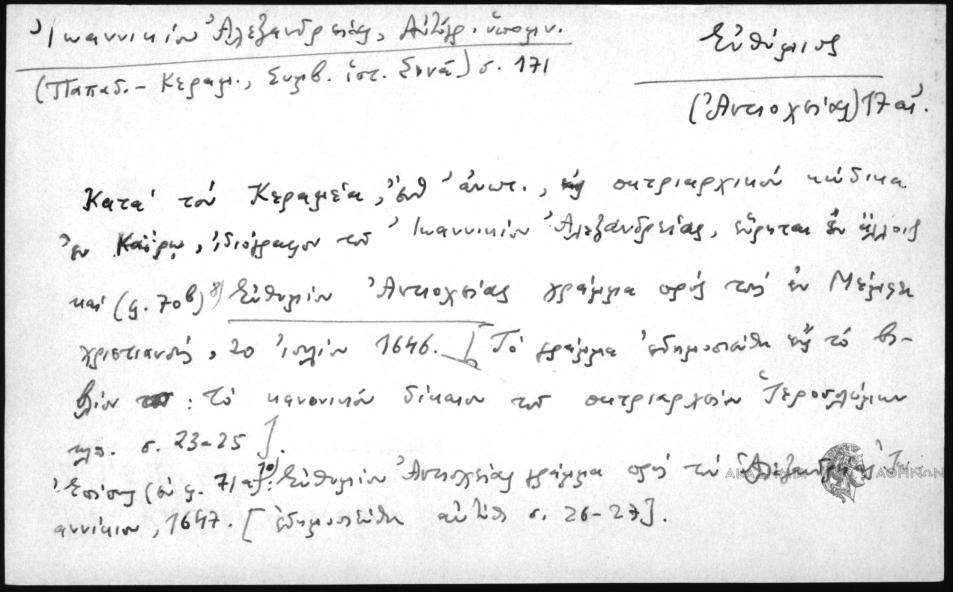 Ἰωαννικίου Ἀλεξανδρείας, Αὐτόγρ. ὑπομν.
(Παπαδ.-Κεραμ., Συμβ. ἱστ. Σινᾶ) σ. 171
Εὐθύμιος
(Ἀντιοχείας) 17 αἰ.
Κατὰ τὸν Κεραμέα, ἔνθ' ἀνωτ., εἰς πατριαρχικὸν κώδικα
ἐν Καΐρῳ, ἰδιόγραφον τοῦ Ἰωαννικίου Ἀλεξανδρείας, εὕρηται ἐν ἄλλοις
καὶ (φ. 70β) Εὐθυμίου Ἀντιοχείας γράμμα πρὸς τοὺς ἐν
χριστιανούς, 20 ἰουλίου 1646. [Τὸ γράμμα ἐδημοσιεύθη εἰς τὸ βι-
βλίον : τὸ κανονικὸν δίκαιον τοῦ πατριαρχείου Ἱεροσολύμων
κλπ. σ. 23-25].
Ἐπίσης (ἐν φ. 71α) Εὐθυμίου Ἀντιοχείας γράμμα πρὸς τὸν Ἀλεξανδρείας Ἰω-
αννίκιον, 1647. [ἐδημοσιεύθη αὐτόθι σ. 26-27].
ΑΚΑΔΗΜΙΑ ΑΘΗΝΩΝ